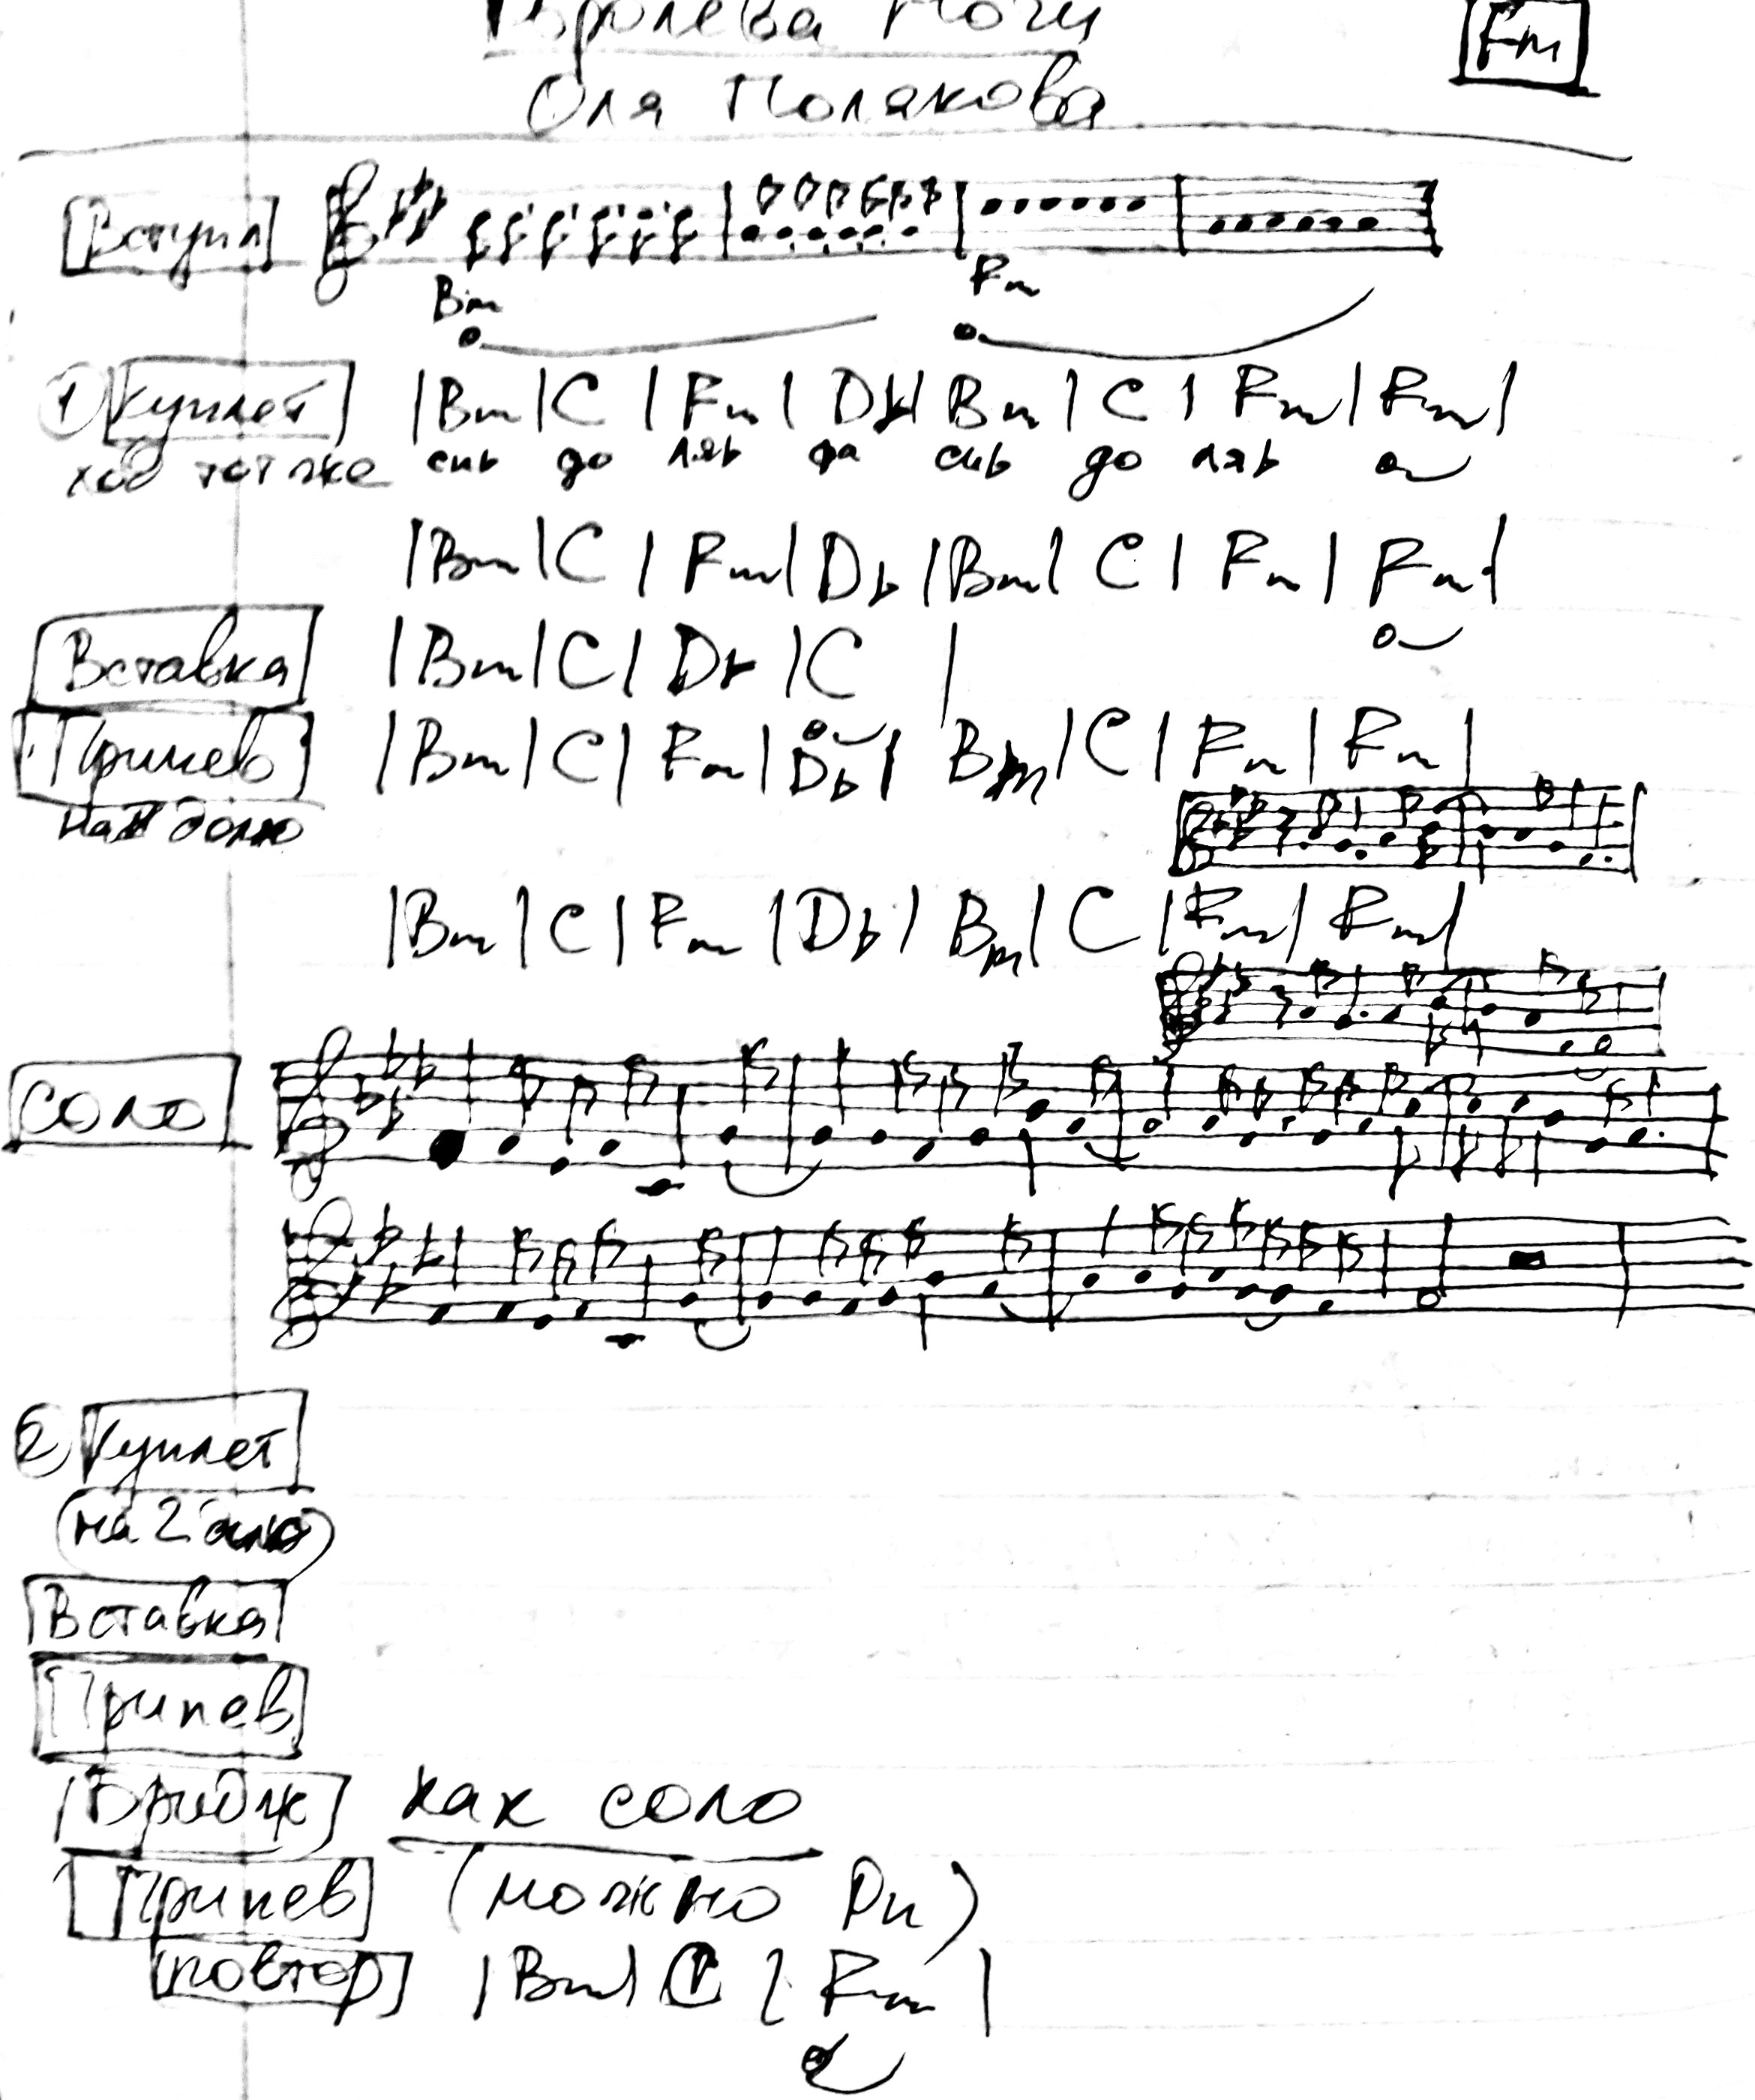 Королева Ночи
Fm
Оля Полякова
Вступл
Bm Fm
① Куплет |Bm|C|Fm|Db|Bm|C|Fm|Fm|
ход тот же сиь до ляь ра сиь до ляь
|Bm|C|Fm|Db|Bm|C|Fm|Fm|
Вставка |Bm|C|Db|C|
Припев |Bm|C|Fm|Db|Bm|C|Fm|Fm|
долю
|Bm|C|Fm|Db|Bm|C|Fm|Fm|
соло
② Куплет
(на 2 долю)
Вставка
Припев
Бридж как соло
Припев (можно Dn)
повтор |Bm|C|Fm|